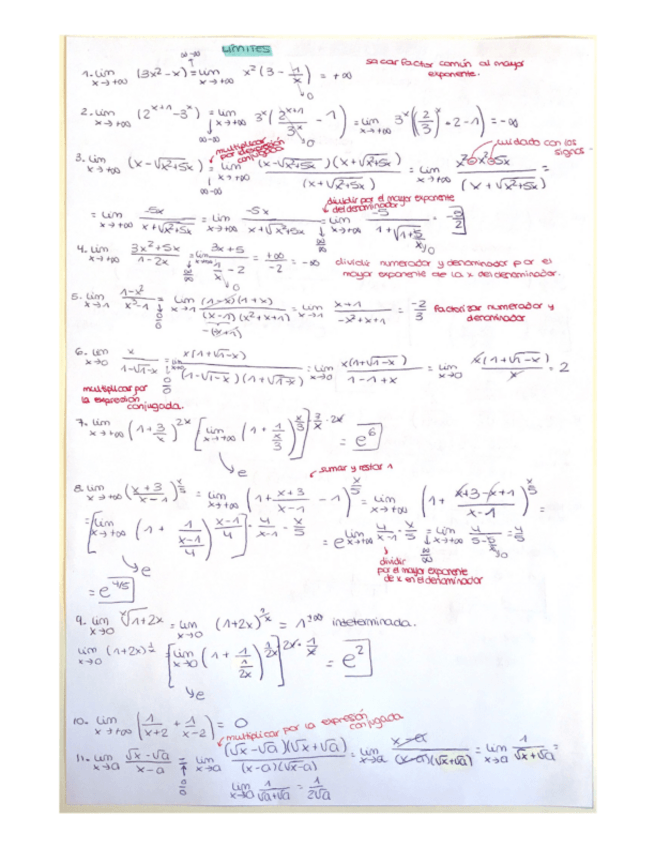 ∞-∞ LÍMITES
1. lim x→+∞ (3x²-x) = lim x→+∞ x²(3 - 1/x) = +∞ sacar factor común al mayor exponente.
→0
2. lim x→+∞ (2^(x+1) - 3^x) = lim x→+∞ 3^x (2^(x+1)/3^x - 1) = lim x→+∞ 3^x ((2/3)^x · 2 - 1) = -∞
∞-∞ →0
multiplicar por expresión conjugada cuidado con los signos
3. lim x→+∞ (x - √(x²+5x)) = lim x→+∞ (x-√(x²+5x))(x+√(x²+5x)) / (x+√(x²+5x)) = lim x→+∞ x²-x²-5x / (x+√(x²+5x)) =
∞-∞
dividir por el mayor exponente del denominador
= lim x→+∞ -5x / x+√(x²+5x) = lim x→+∞ -5x / x+√(x²+5x) = lim x→+∞ -5 / 1+√(1+5/x) = -5/2
∞/∞ →0
4. lim x→+∞ 3x²+5x / 1-2x = lim x→+∞ 3x+5 / 1/x - 2 = +∞ / -2 = -∞ dividir numerador y denominador por el mayor exponente de la x del denominador.
∞/∞ →0
5. lim x→1 1-x² / x³-1 = lim x→1 (1-x)(1+x) / (x-1)(x²+x+1) = lim x→1 x+1 / -x²+x+1 = -2/3 factorizar numerador y denominador
0/0 -(x+1)
6. lim x→0 x / 1-√(1-x) = lim x→0 x(1+√(1-x)) / (1-√(1-x))(1+√(1-x)) = lim x→0 x(1+√(1-x)) / 1-1+x = lim x→0 x(1+√(1-x)) / x = 2
0/0
multiplicar por la expresión conjugada.
7. lim x→+∞ (1+3/x)^(2x) [lim x→+∞ (1 + 1/(x/3))^(x/3)]^(3/x · 2x) = e^6
→e
sumar y restar 1
8. lim x→+∞ (x+3 / x-1)^(x/5) = lim x→+∞ (1 + x+3 / x-1 - 1)^(x/5) = lim x→+∞ (1 + x+3-x+1 / x-1)^(x/5) =
= [lim x→+∞ (1 + 1/((x-1)/4))^((x-1)/4)]^(4/(x-1) · x/5) = e^(lim x→+∞ 4/(x-1) · x/5) = lim x→+∞ 4 / 5-5/x = 4/5
→e ∞/∞ →0
dividir por el mayor exponente de x en el denominador
= e^(4/5)
9. lim x→0 ˣ√(1+2x) = lim x→0 (1+2x)^(1/x) = 1^(±∞) indeterminada.
lim x→0 (1+2x)^(1/x) [lim x→0 (1 + 1/(1/2x))^(1/2x)]^(2x · 1/x) = e²
→e
10. lim x→+∞ (1/x+2 + 1/x-2) = 0
multiplicar por la expresión conjugada
11. lim x→a √x-√a / x-a = lim x→a (√x-√a)(√x+√a) / (x-a)(√x-a) = lim x→a x-a / (x-a)(√x+√a) = lim x→a 1 / √x+√a =
0/0
lim x→a 1 / √a+√a = 1 / 2√a